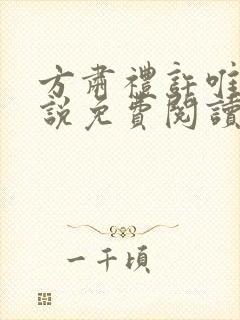 方肅禮許唯
說免費閱讀
一千頃